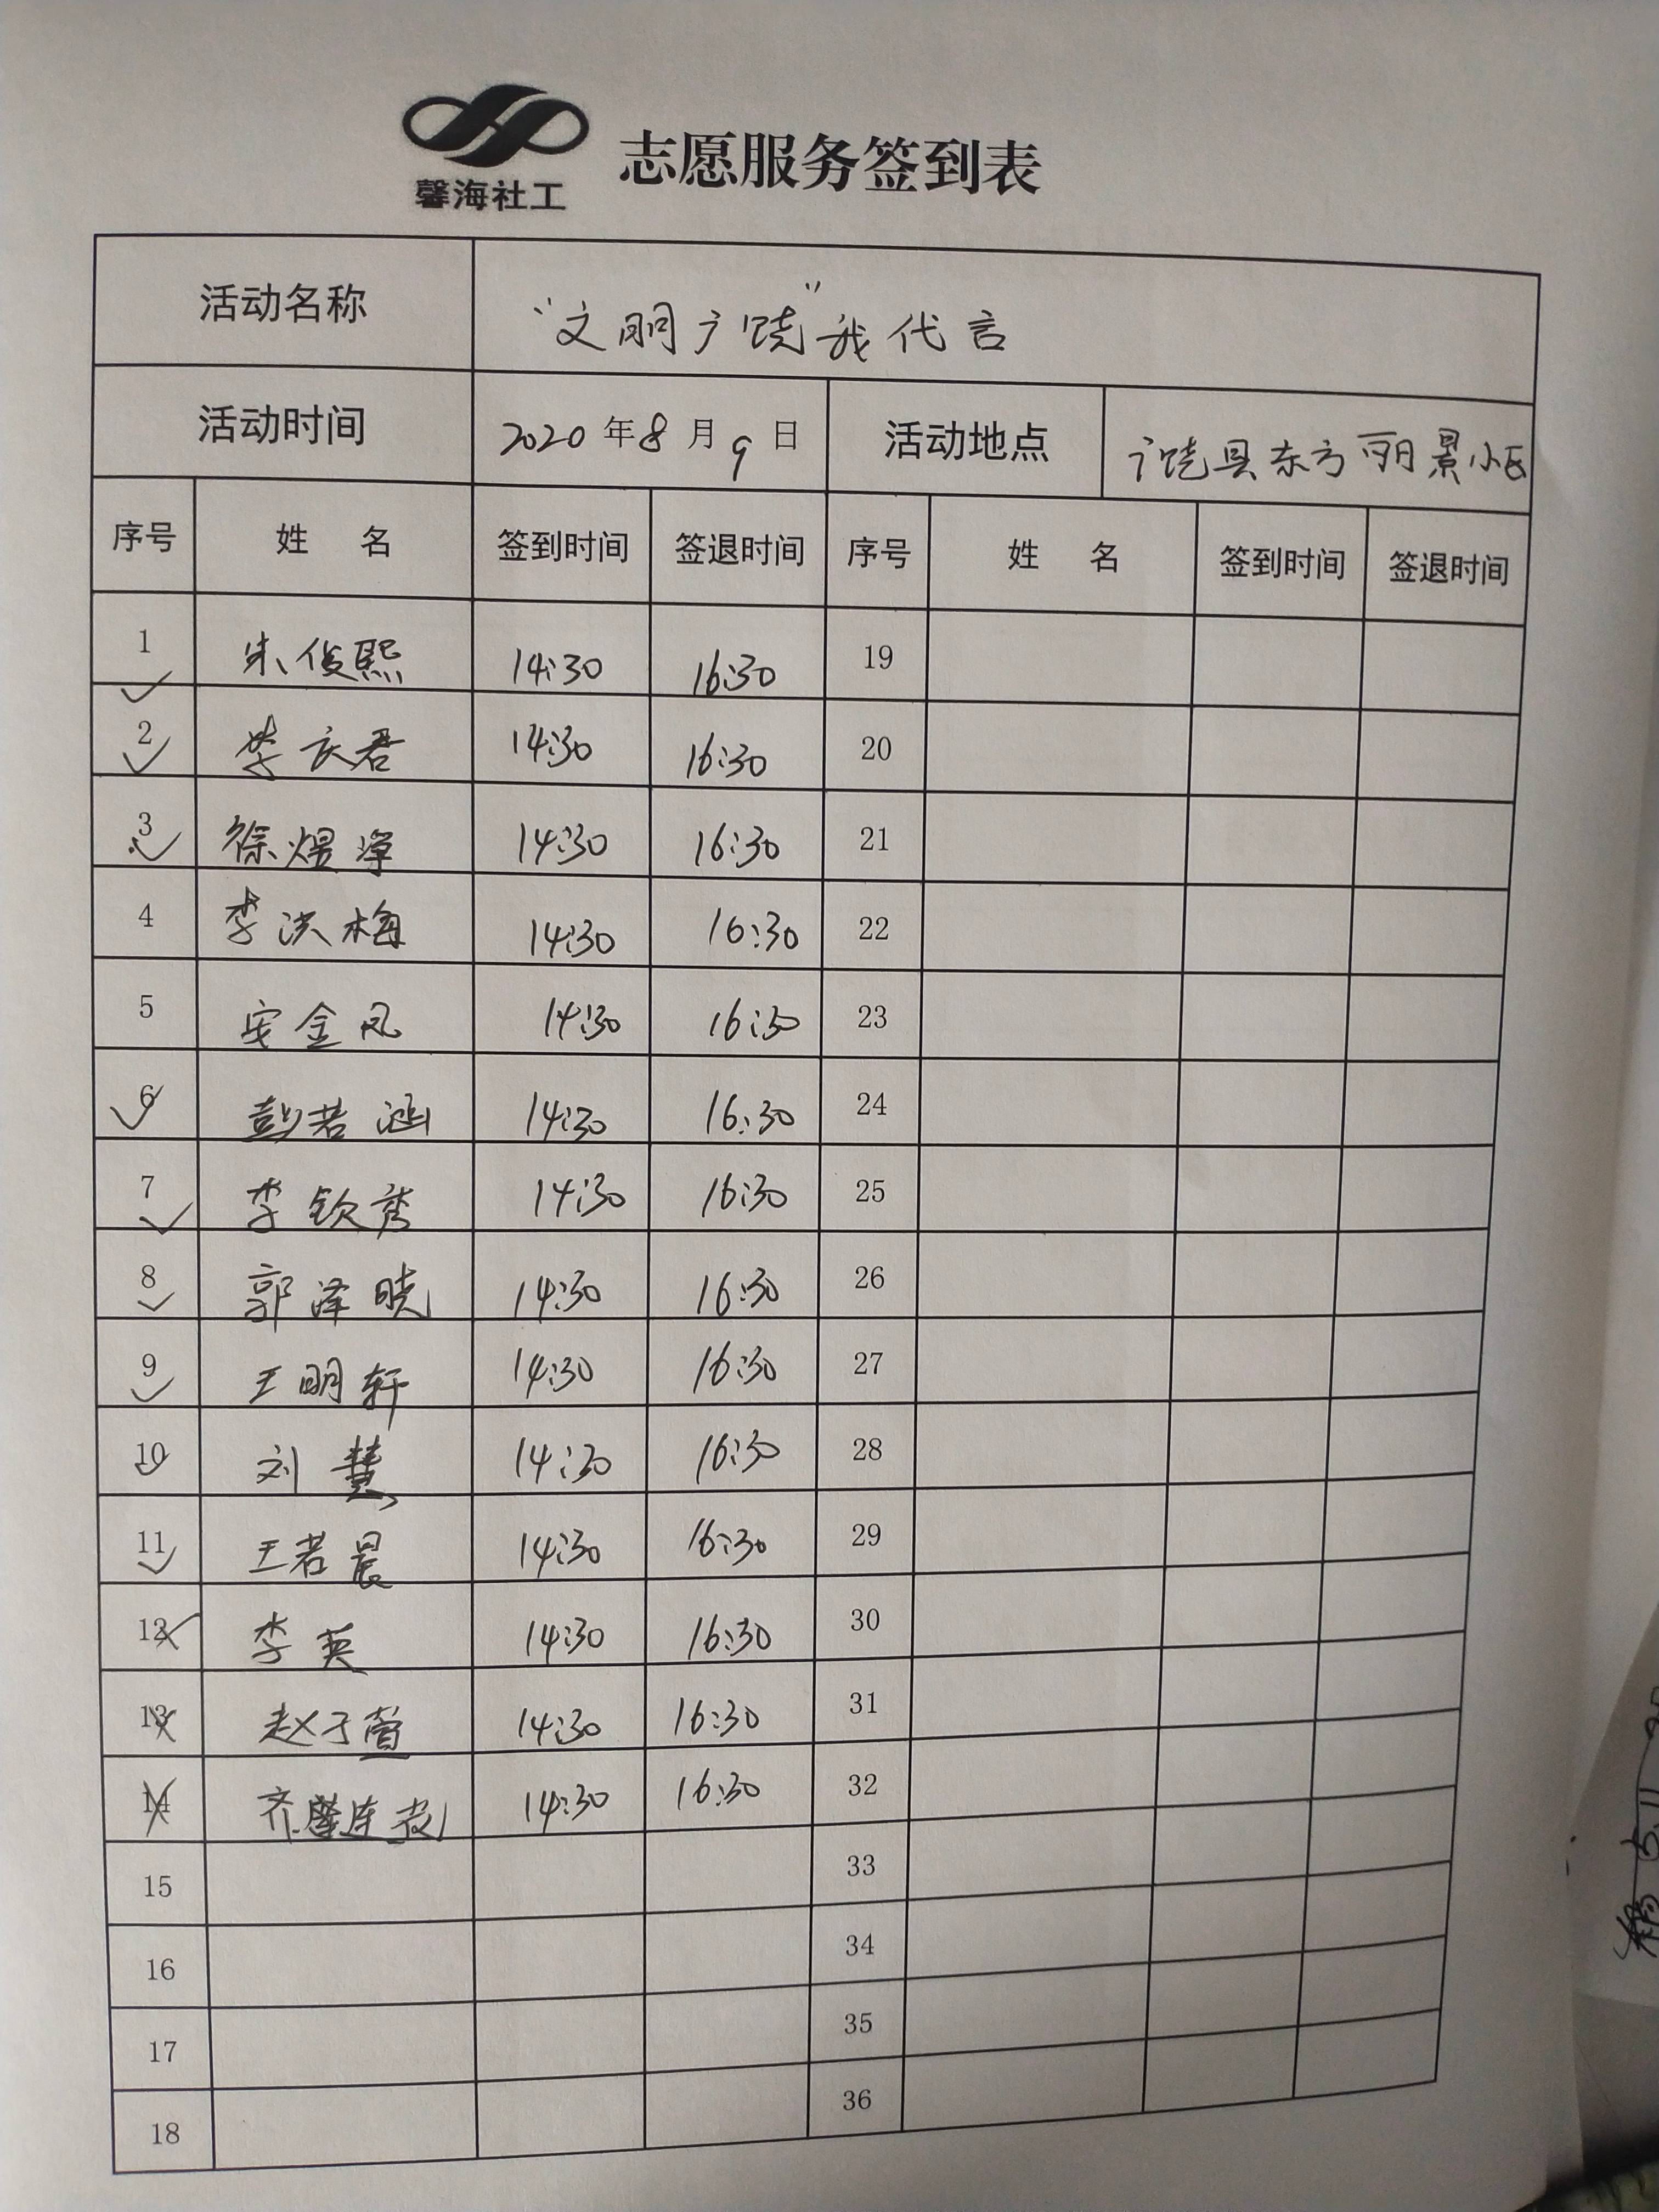 馨海社工
志愿服务签到表
活动名称 “文明广饶”我代言
活动时间 2020年8月9日 活动地点 广饶县东方丽景小区
序号 姓 名 签到时间 签退时间 序号 姓 名 签到时间 签退时间
1 朱俊熙 14:30 16:30 19
2 李庆君 14:30 16:30 20
3 徐煜淖 14:30 16:30 21
4 李洪梅 14:30 16:30 22
5 安金凤 14:30 16:30 23
6 彭若涵 14:30 16:30 24
7 李钦秀 14:30 16:30 25
8 郭泽晓 14:30 16:30 26
9 王明轩 14:30 16:30 27
10 刘慧 14:30 16:30 28
11 王若晨 14:30 16:30 29
12 李英 14:30 16:30 30
13 赵子萱 14:30 16:30 31
14 14:30 16:30 32
15 33
16 34
17 35
18 36